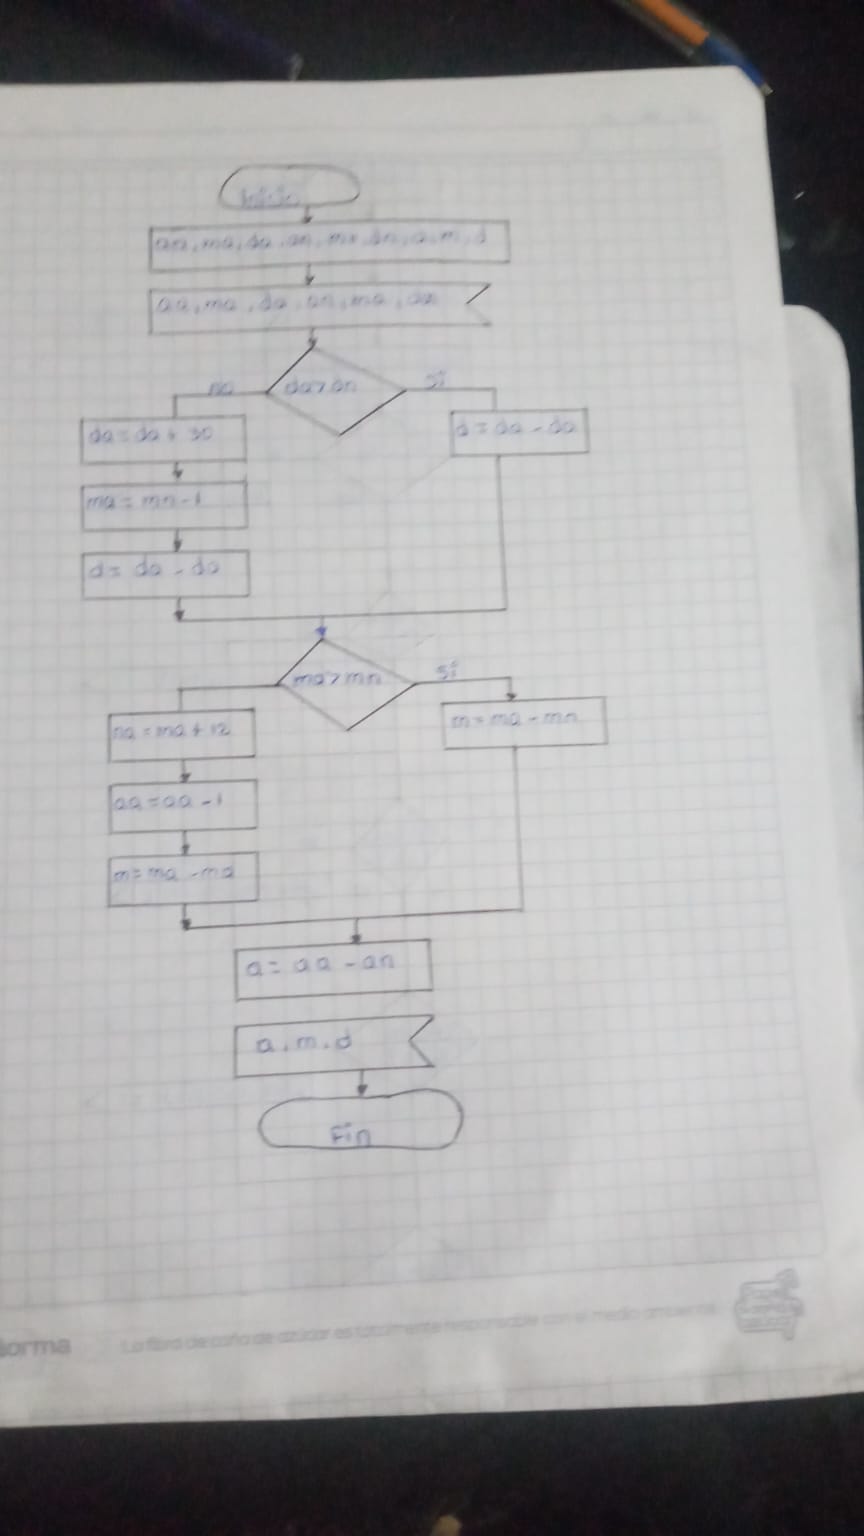 Inicio
aa, ma, da, an, mn, dn, a, m, d
aa, ma, da, an, ma, da
no
da>dn
Si
da = da + 30
d = da - da
ma = mn - 1
d = da - da
ma>mn
Si
na = ma + 12
m = ma - mn
aa = aa - 1
m = ma - ma
a = aa - an
a, m, d
Fin
norma
La fibra de caña de azúcar es totalmente responsable con el medio ambiente